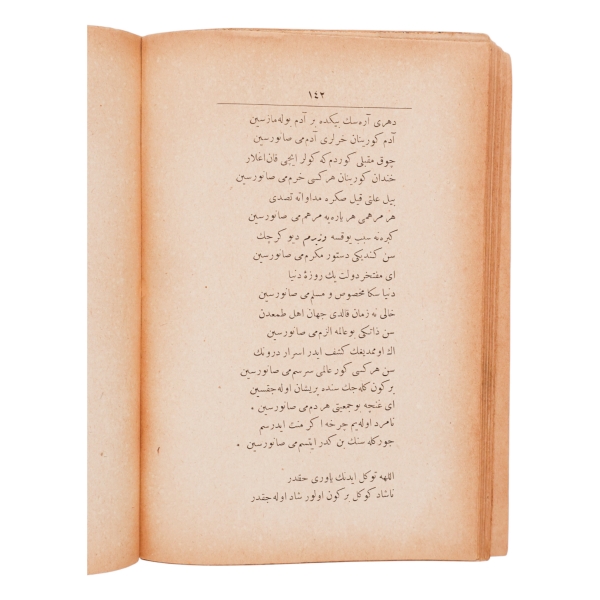 ١٤٢
دهری آره‌سك بیكده بر آدم بوله‌مازسین
آدم كورینان خرلری آدم‌می صانورسین
چوق مقبلی كوردم كه كولر ایچی قان اغلار
خندان كورینان هركسی خرم‌می صانورسین
بیل علتی قیل صكره مداوایه تصدی
هر مرهمی هر یاره‌یه مرهم‌می صانورسین
كبره نه سبب یوقسه وزیرم دیو كرچك
سن كندیكی دستور مكرم‌می صانورسین
ای مفتخر دولت یك روزهٔ دنیا
دنیا سكا مخصوص و مسلم‌می صانورسین
خالی نه زمان قالدی جهان اهل طمعدن
سن ذاتكی بو عالمه الزم‌می صانورسین
اك اومدیغك كشف ایدر اسرار درونك
سن هركسی كور عالمی سرسم‌می صانورسین
بر كون كله‌جك سنده پریشان اوله‌جقسین
ای غنچه بو جمعیتی هر دم‌می صانورسین .
نامرد اوله‌یم چرخه اكر منت ایدرسم
جور كله سنك بن كدر ایتسم‌می صانورسین .
اللهه توكل ایدنك یاوری حقدر
ناشاد كوكل بر كون اولور شاد اوله‌جقدر